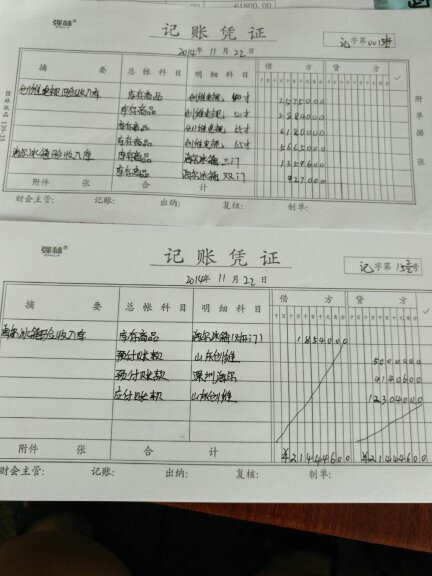 61800.00
强林®
记账凭证
2014年11月22日
记字第0015号
摘 要 总帐科目 明细科目 借方 贷方 ✓
千百十万千百十元角分 千百十万千百十元角分
创维电视验收入库 库存商品 创维电视 40寸 2575000
库存商品 创维电视 50寸 2884000
库存商品 创维电视 55寸 6180000
库存商品 创维电视 65寸 5665000
海尔冰箱验收入库 库存商品 海尔冰箱 三门 1359600
库存商品 海尔冰箱 双门 927000
附件 张 合 计
财会主管: 记账: 出纳: 复核: 制单:
强林纸品 139-35
附单据 张
强林®
记账凭证
2014年11月22日
记字第15号
摘 要 总帐科目 明细科目 借方 贷方
千百十万千百十元角分 千百十万千百十元角分
海尔冰箱验收入库 库存商品 海尔冰箱(对开门) 1854000
预付账款 山东创维 5000000
预付账款 深圳海尔 4140600
应付账款 山东创维 12304000
附件 张 合 计 ¥21444600 ¥21444600
财会主管: 记账: 出纳: 复核: 制单: